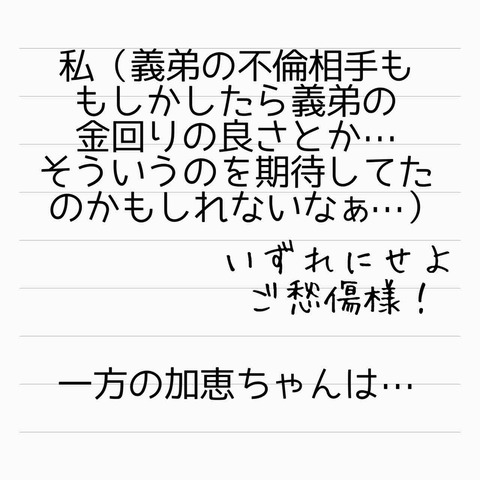 私（義弟の不倫相手も
もしかしたら義弟の
金回りの良さとか…
そういうのを期待してた
のかもしれないなぁ…）
いずれにせよ
ご愁傷様！
一方の加恵ちゃんは…